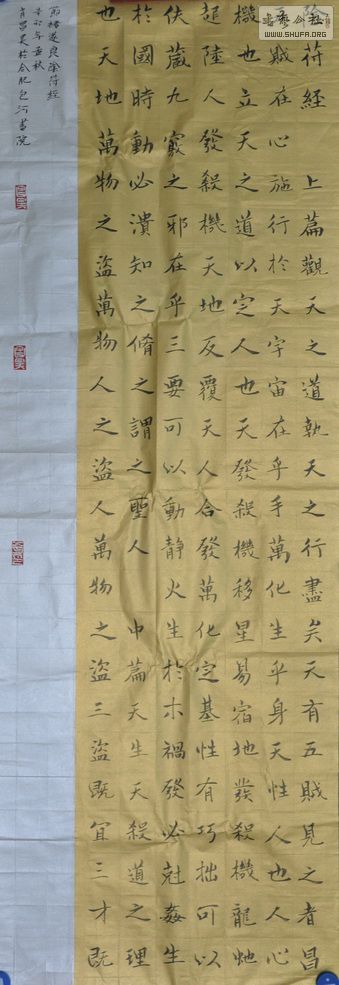 陰符經 上篇觀天之道執天之行盡矣天有五賊見之者昌
五賊在心施行於天宇宙在乎手萬化生乎身天性人也人心
機也立天之道以定人也天發殺機移星易宿地發殺機龍虵
起陸人發殺機天地反覆天人合發萬化定基性有巧拙可以
伏藏九竅之邪在乎三要可以動靜火生於木禍發必尅姦生
於國時動必潰知之脩之謂之聖人 中篇天生天殺道之理
也天地萬物之盜萬物人之盜人萬物之盜三盜既宜三才既
節褚遂良陰符經
辛卯年孟秋
肖昌昊於合肥包河書院
WWW.SHUFA.ORG